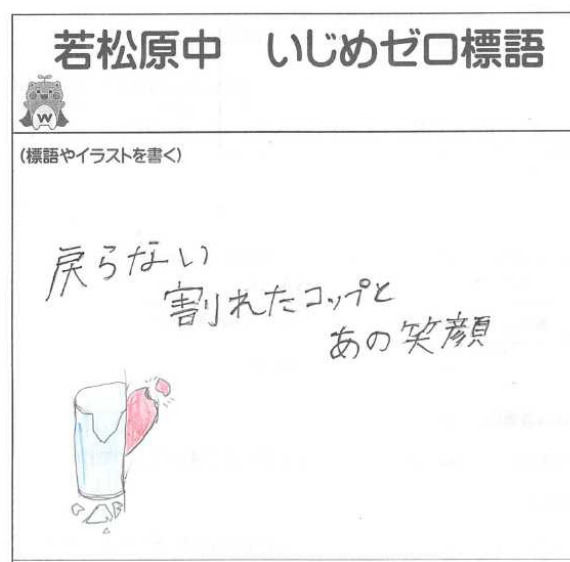 若松原中 いじめゼロ標語
W
(標語やイラストを書く)
戻らない
割れたコップと
あの笑顔